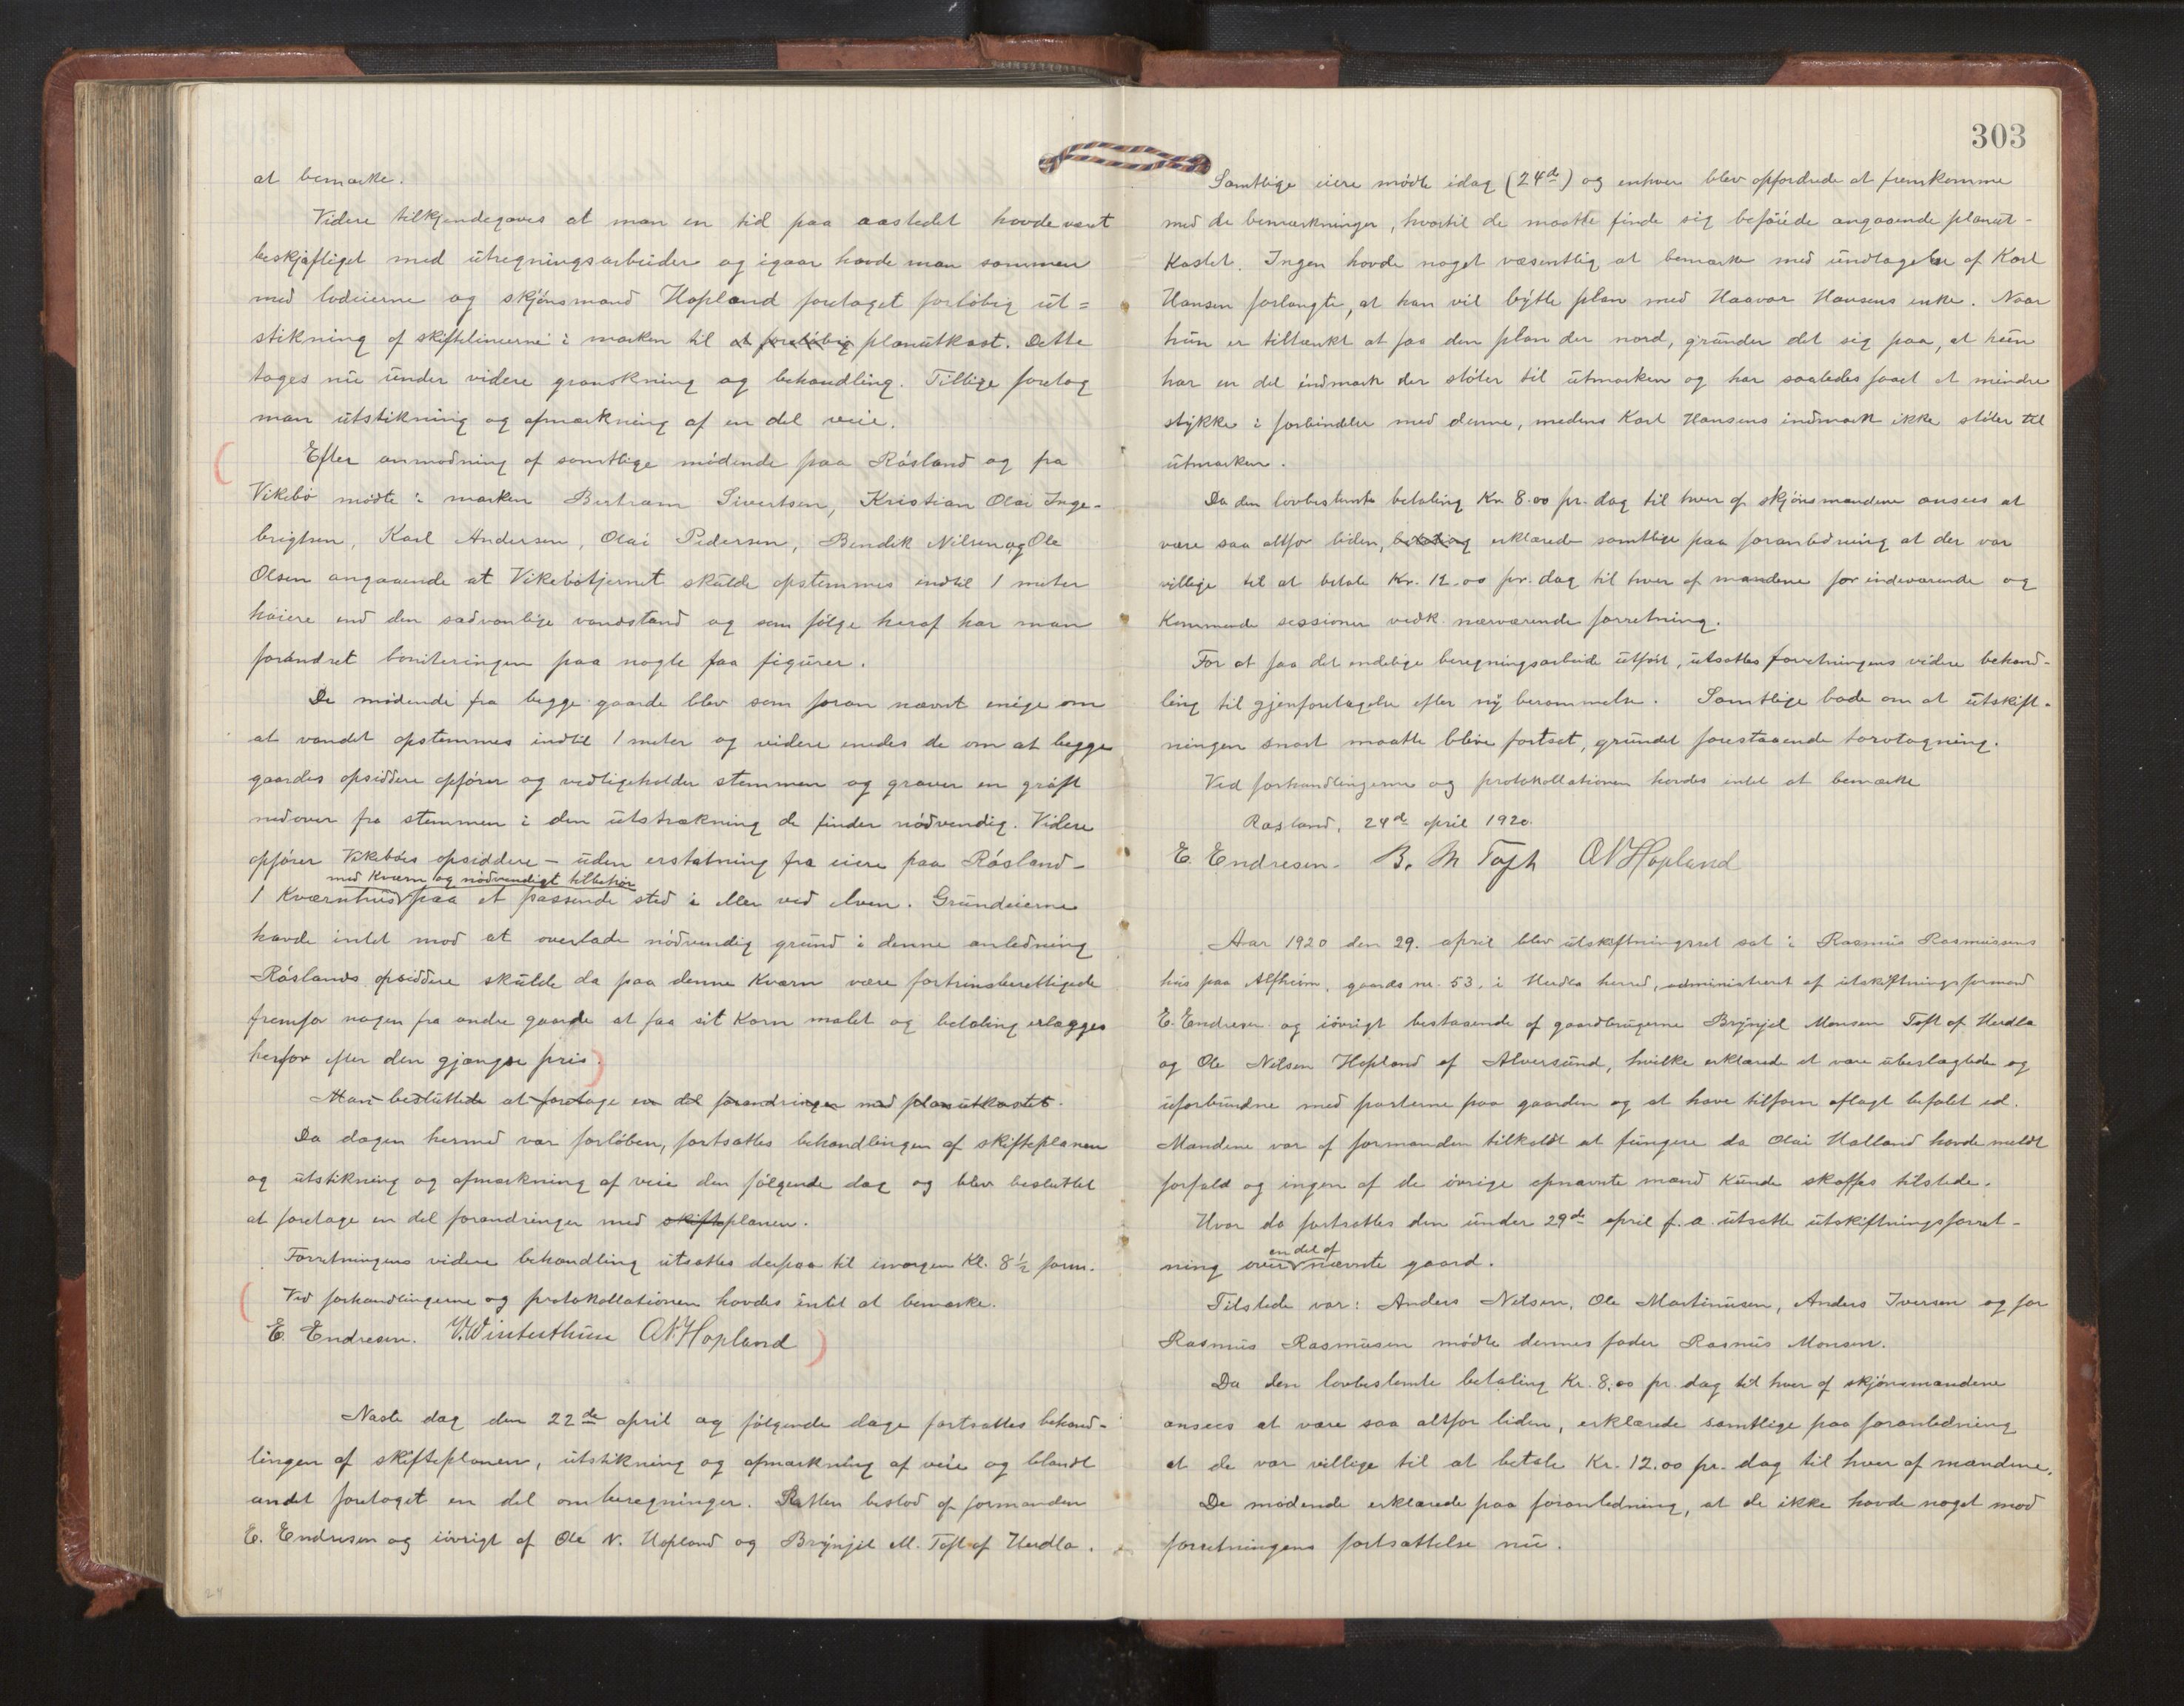 at bemærke.
Videre tilkjendegaves at man en tid paa aastedet havde været
beskjæftiget med utregningsarbeider og igaar havde man sammen
med lodeierne og skjønsmand Hopland foretaget forløbig ut=
stikning af skiftelinierne i marken til et foreløbig planutkast. Dette
toges nu under videre granskning og behandling. Tillige foretog
man utstikning og afmærkning af en del veie.
Efter anmodning af samtlige mødende paa Røsland og fra
Vikebø mødte i marken Bertram Sivertsen, Kristian Olai Inge-
brigtsen, Karl Andersen, Olai Pedersen, Bendik Nilsen og Ole
Olsen angaaende at Vikebøtjernet skulde opstemmes indtil 1 meter
høiere end den sædvanlige vandstand og som følge heraf har man
forandret boniteringen paa nogle faa figurer.
De mødende fra begge gaarde blev som foran nævnt enige om
at vandet opstemmes indtil 1 meter og videre enedes de om at begge
gaardes opsiddere opfører og vedligeholder stemmen og graver en grøft
nedover fra stemmen i den utstrækning de finder nødvendig. Videre
opfører Vikebøs opsiddere – uden erstatning fra eiere paa Røsland –
med kværn og nødvendigt tilbehør
1 kværnhus paa et passende sted i eller ved elven. Grundeierne
havde intet mod at overlade nødvendig grund i denne anledning
Røslands opsiddere skulde da paa denne kværn være fortrinsberettigede
fremfor nogen fra andre gaarde at faa sit korn malet og betaling erlægges
herfor efter den gjængse pris.
Man besluttede at foretage en del forandringer med planutkastet.
Da dagen hermed var forløben, fortsattes behandlingen af skifteplanen
og utstikning og afmærkning af veie den følgende dag og blev besluttet
at foretage en del forandringer med skifteplanen.
Forretningens videre behandling utsattes derpaa til imorgen kl. 8½ form.
Ved forhandlingerne og protokollationen havdes intet at bemærke.
E. Endresen. V. Winterthun O N Hopland
Næste dag den 22de april og følgende dage fortsattes behand-
lingen af skifteplanen, utstikning og afmærkning af veie og blandt
andet foretaget en del omberegninger. Retten bestod af formanden
E. Endresen og iøvrigt af Ole N. Hopland og Brynjel M. Toft af Herdla.
24
303
Samtlige eiere mødte idag (24de) og enhver blev opfordrede at fremkomme
med de bemærkninger, hvortil de maatte finde sig beføiede angaaende planut-
kastet. Ingen havde noget væsentlig at bemærke med undtagelse af Karl
Hansen forlangte, at han vil bytte plan med Haavar Hansens enke. Naar
hun er tiltænkt at faa den plan der nord, grunder det sig paa, at hun
har en del indmark der støter til utmarken og har saaledes faaet et mindre
stykke i forbindelse med denne, medens Karl Hansens indmark ikke støter til
utmarken.
Da den lovbestemte betaling Kr. 8.00 pr. dag til hver af skjønsmændene ansees at
være saa altfor liden, betaling erklærede samtlige paa foranledning at der var
villige til at betale Kr. 12.00 pr. dag til hver af mændene for indeværende og
kommende sessioner vedk. nærværende forretning.
For at faa det endelige beregningsarbeide utført, utsattes forretningens videre behand-
ling til gjenforetagelse efter ny berammelse. Samtlige bade om at utskift-
ningen snart maatte blive fortsat, grundet forestaaende torvtagning.
Ved forhandlingerne og protokollationen havdes intet at bemærke
Røsland, 24de april 1920.
E. Endresen. B. M Toft O N Hopland
Aar 1920 den 29. april blev utskiftningsret sat i Rasmus Rasmussens
hus paa Alfheim, gaards nr. 53, i Herdla herred, administreret af utskiftningsformand
E. Endresen og iøvrigt bestaaende af gaardbrugerne Brynjel Monsen Toft af Herdla
og Ole Nilsen Hopland af Alversund, hvilke erklærede at være ubeslægtede og
uforbundne med parterne paa gaarden og at have tilforn aflagt befalet ed.
Mændene var af formanden tilkaldt at fungere da Olai Halland havde meldt
forfald og ingen af de øvrige opnævnte mænd kunde skaffes tilstede.
Hvor da fortsattes den under 29de april f.a. utsatte utskiftningsforret-
en del af
ning over nævnte gaard.
Tilstede var: Anders Nilsen, Ole Martinusen, Anders Iversen og for
Rasmus Rasmussen mødte dennes fader Rasmus Monsen.
Da den lovbestemte betaling Kr. 8.00 pr. dag til hver af skjønsmændene
ansees at være saa altfor liden, erklærede samtlige paa foranledning
at de var villige til at betale Kr. 12.00 pr. dag til hver af mændene.
De mødende erklærede paa foranledning, at de ikke havde noget mod
forretningens fortsættelse nu.